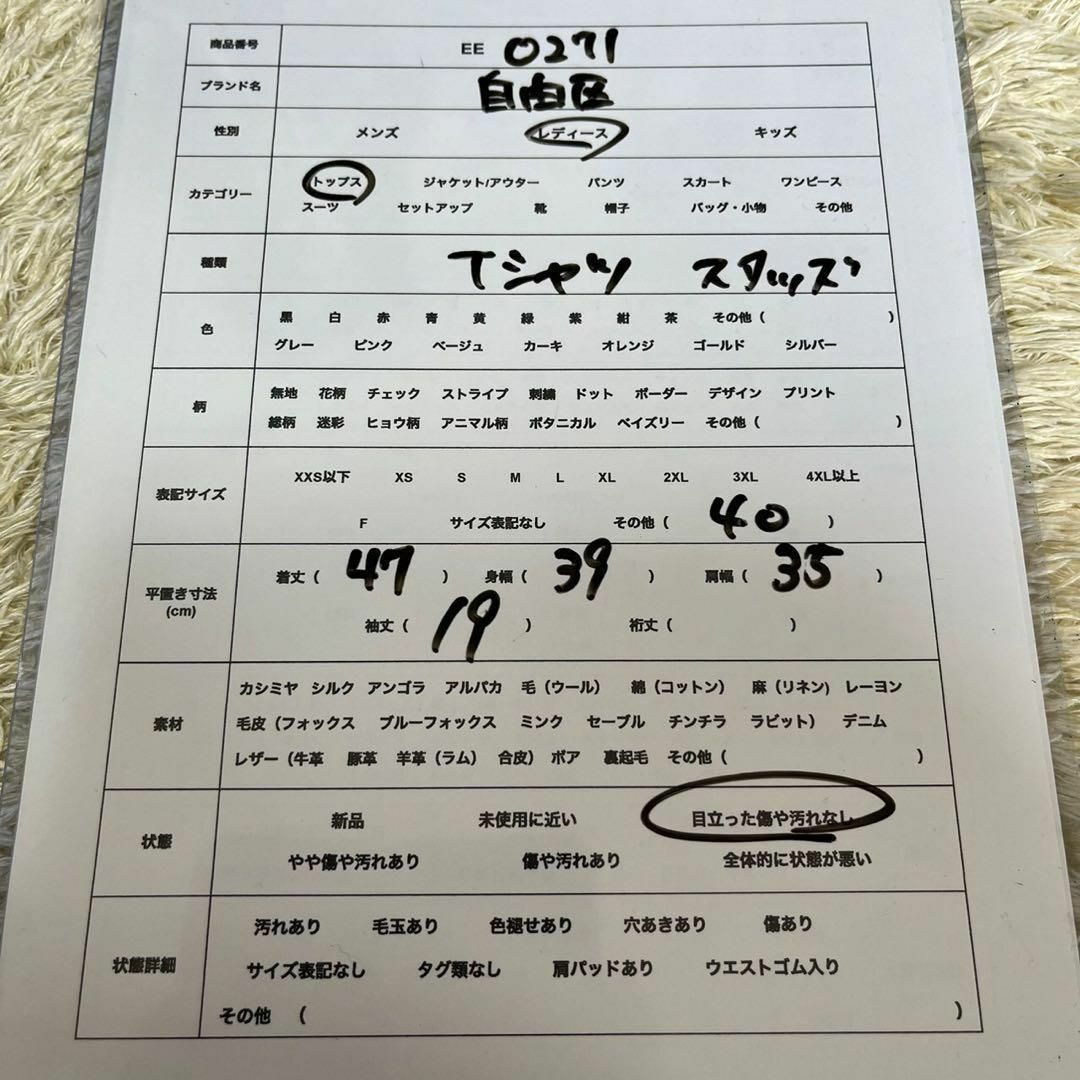 商品番号 EE 0271
ブランド名 自由区
性別 メンズ レディース キッズ
カテゴリー トップス ジャケット/アウター パンツ スカート ワンピース
スーツ セットアップ 靴 帽子 バッグ・小物 その他
種類 Tシャツ スタッズ
色 黒 白 赤 青 黄 緑 紫 紺 茶 その他( )
グレー ピンク ベージュ カーキ オレンジ ゴールド シルバー
柄 無地 花柄 チェック ストライプ 刺繍 ドット ボーダー デザイン プリント
総柄 迷彩 ヒョウ柄 アニマル柄 ボタニカル ペイズリー その他( )
表記サイズ XXS以下 XS S M L XL 2XL 3XL 4XL以上
F サイズ表記なし その他( 40 )
平置き寸法 着丈( 47 ) 身幅( 39 ) 肩幅( 35 )
(cm) 袖丈( 19 ) 裄丈( )
素材 カシミヤ シルク アンゴラ アルパカ 毛(ウール) 綿(コットン) 麻(リネン) レーヨン
毛皮(フォックス ブルーフォックス ミンク セーブル チンチラ ラビット) デニム
レザー(牛革 豚革 羊革(ラム) 合皮) ボア 裏起毛 その他( )
状態 新品 未使用に近い 目立った傷や汚れなし
やや傷や汚れあり 傷や汚れあり 全体的に状態が悪い
状態詳細 汚れあり 毛玉あり 色褪せあり 穴あきあり 傷あり
サイズ表記なし タグ類なし 肩パッドあり ウエストゴム入り
その他 ( )